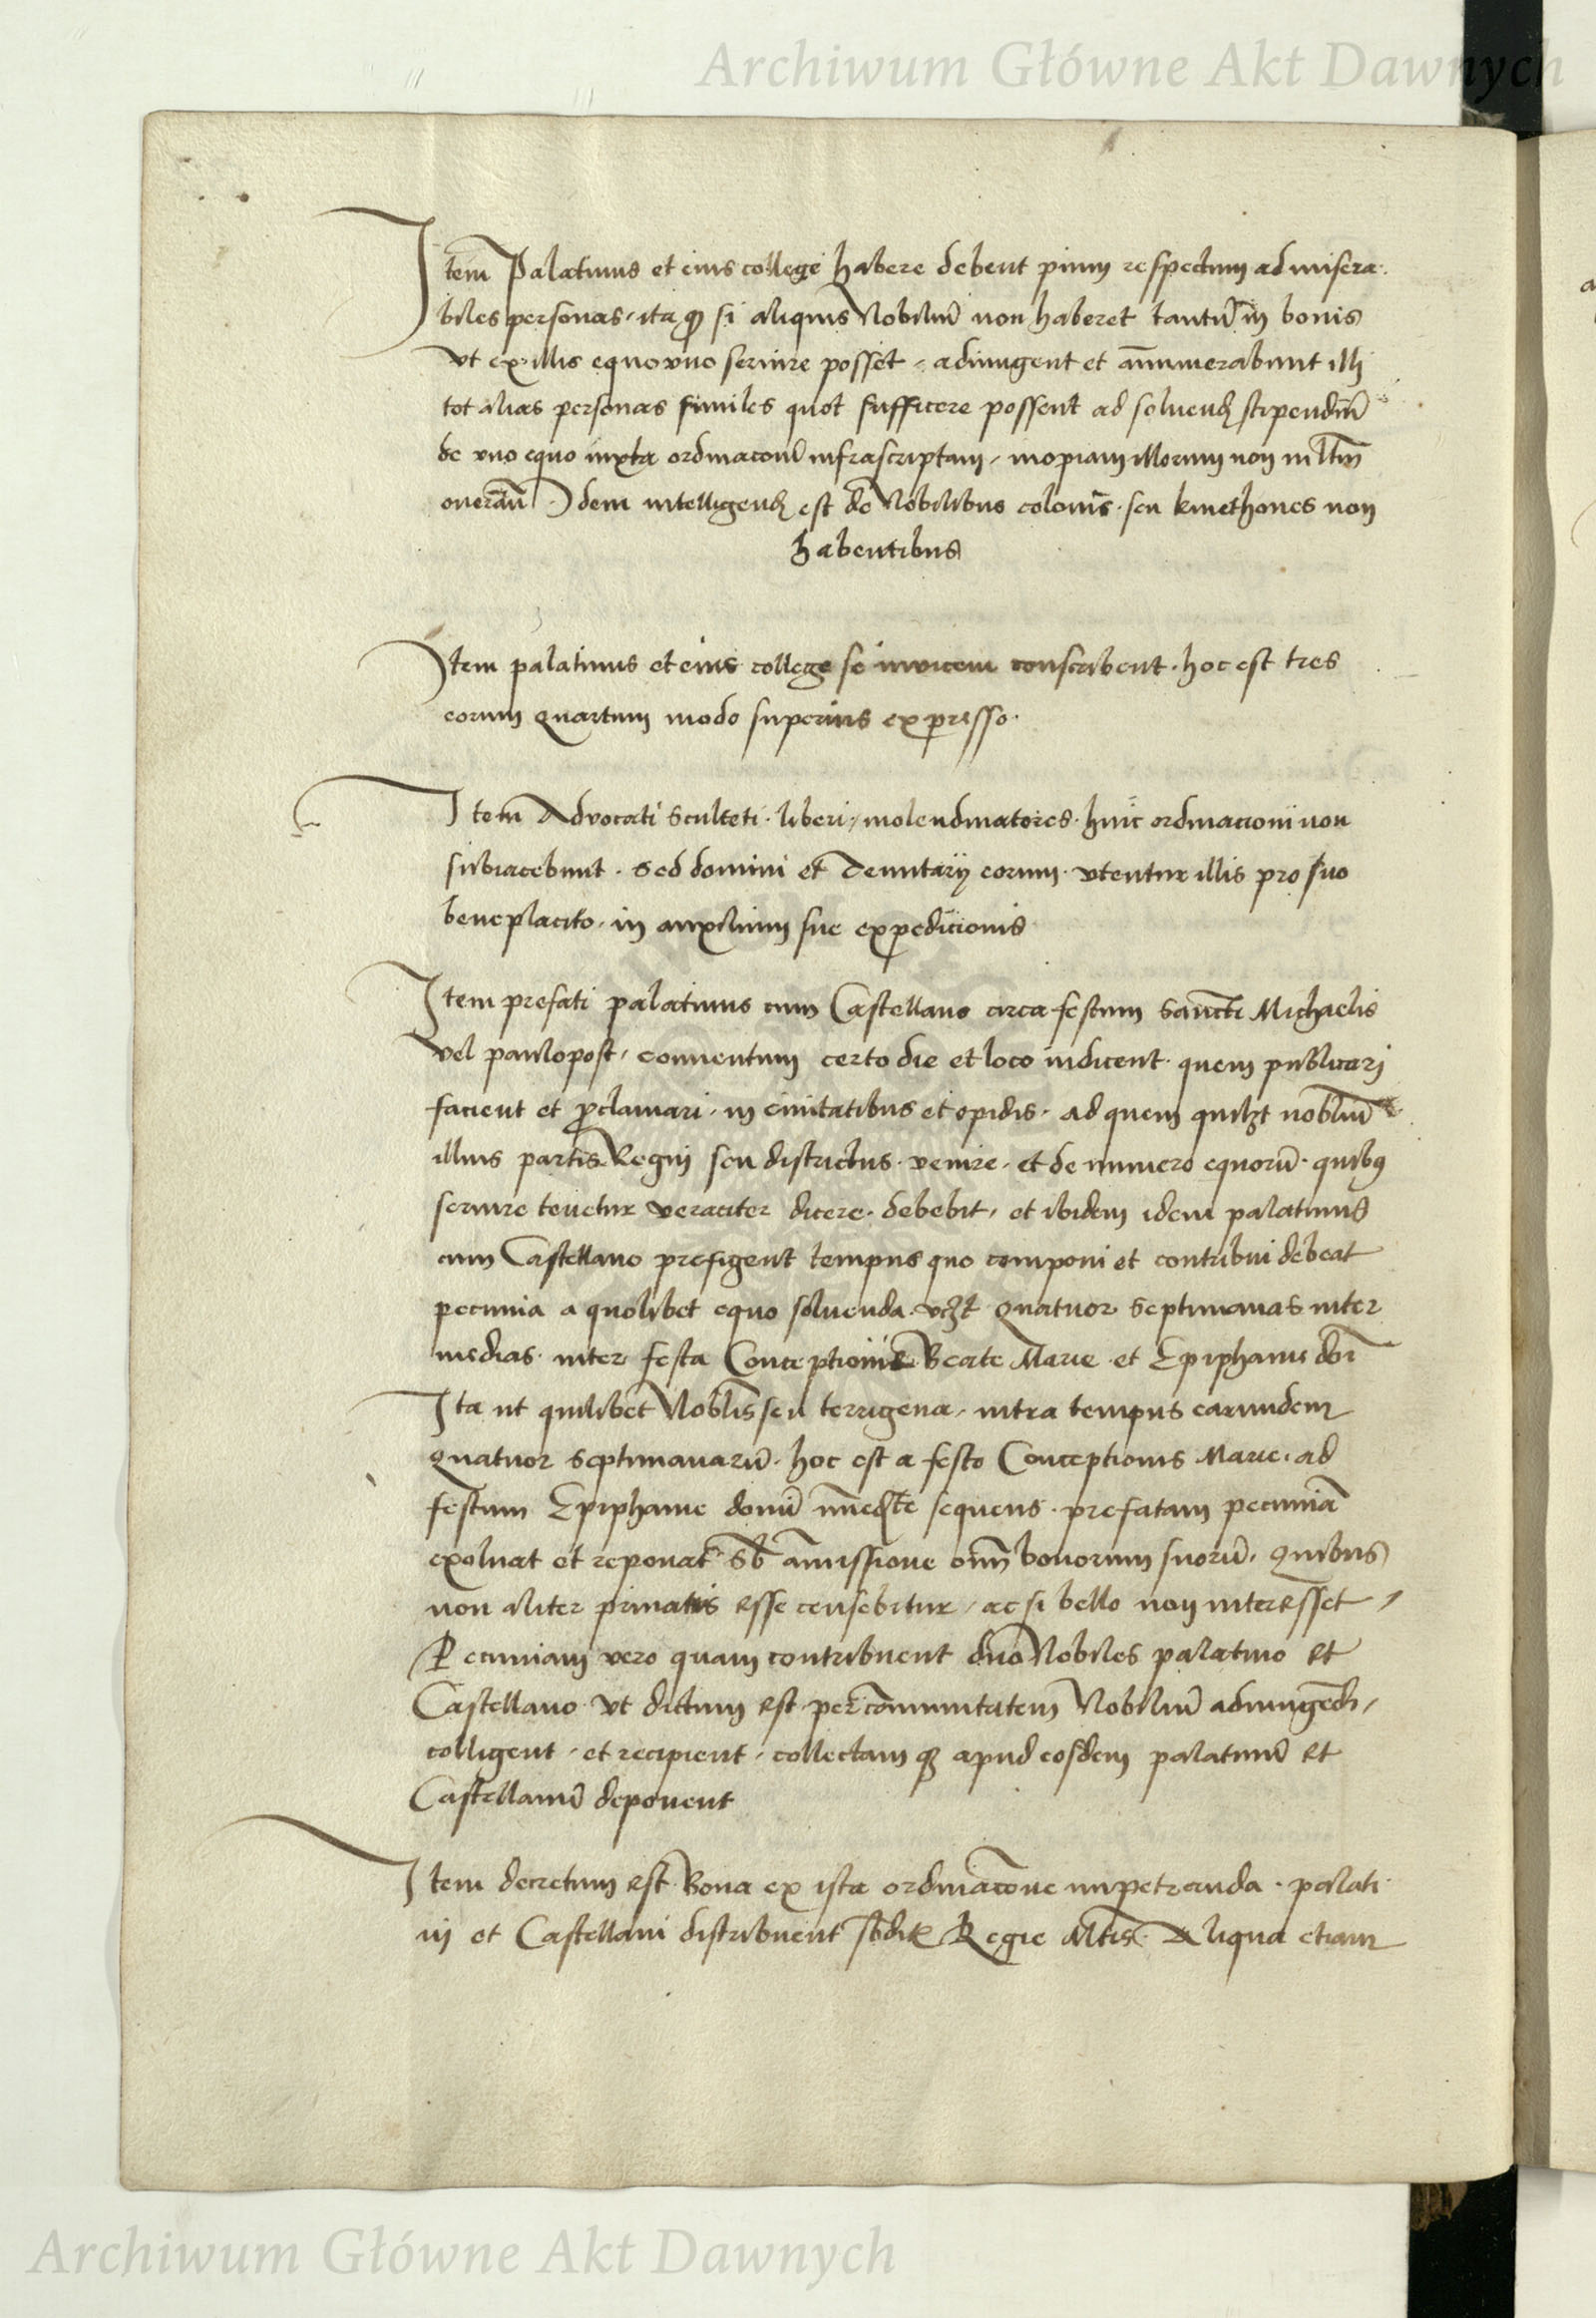 Archiwum Główne Akt Dawnych
Item Palatinus et eius college habere debent pium respectum ad misera
biles personas, ita qd si aliquis Nobiliũ non haberet tantũ in bonis
vt ex illis equo vno seruire posset, adiungent et ãnumerabunt illi
tot alias personas similes quot sufficere possent ad soluend stipendiũ
de vno equo iuxta ordinaconẽ infrascriptam, inopiam illorum non
Idem intelligend est de Nobilibus colonis seu kmethones non
habentibus
Item palatinus et eius college se invicem conscribent. hoc est tres
eorum quartum modo superius expresso.
Item Advocati Sculteti. liberi, molendinatores. huic ordinacioni non
subiacebunt. Sed domini et Tenutarij eorum. vtentur illis pro suo
beneplacito. in auxilium sue expedicionis
Item prefati palatinus cum Castellano circa festum Sancti Michaelis
vel paulopost, conuentum certo die et loco indicent. quem publicari
facient et proclamari. in ciuitatibus et opidis. ad quem quilzt nobliũ
illius partis Regni seu districtus. venire. et de numero equorũ. quibus
seruire tenetur veraciter dicere. debebit, et ibidem idem palatinus
cum Castellano prefigent tempus quo componi et contribui debeat
pecunia a quolibet equo soluenda. vczt Quatuor Septimanas inter
medias. inter festa Conceptionis Beate Marie. et Epiphanie dni
Ita ut quilibet Noblis seu terrigena, intra tempus earundem
Quatuor Septimanarũ. hoc est a festo Conceptionis Marie. ad
festum Epiphanie domĩ immediate sequens. prefatam pecuniã
exoluat et reponat. Sb amissione omm bonorum suorũ. Quibus
non aliter priuatus esse censebitur, ac si bello non interesset,
Pecuniam vero quam contribuent duo Nobiles palatino et
Castellano. vt dictum est per comunitatem Nobiliũ adiungedi,
colligent, et recipient, collectam qz apud eosdem palatinũ et
Castellanũ deponent
Item decretum est. Bona ex ista ordinacone impetranda. palati
ni et Castellani distribuent sbdit Regie Mtis. Aliqua etiam
Archiwum Główne Akt Dawnych